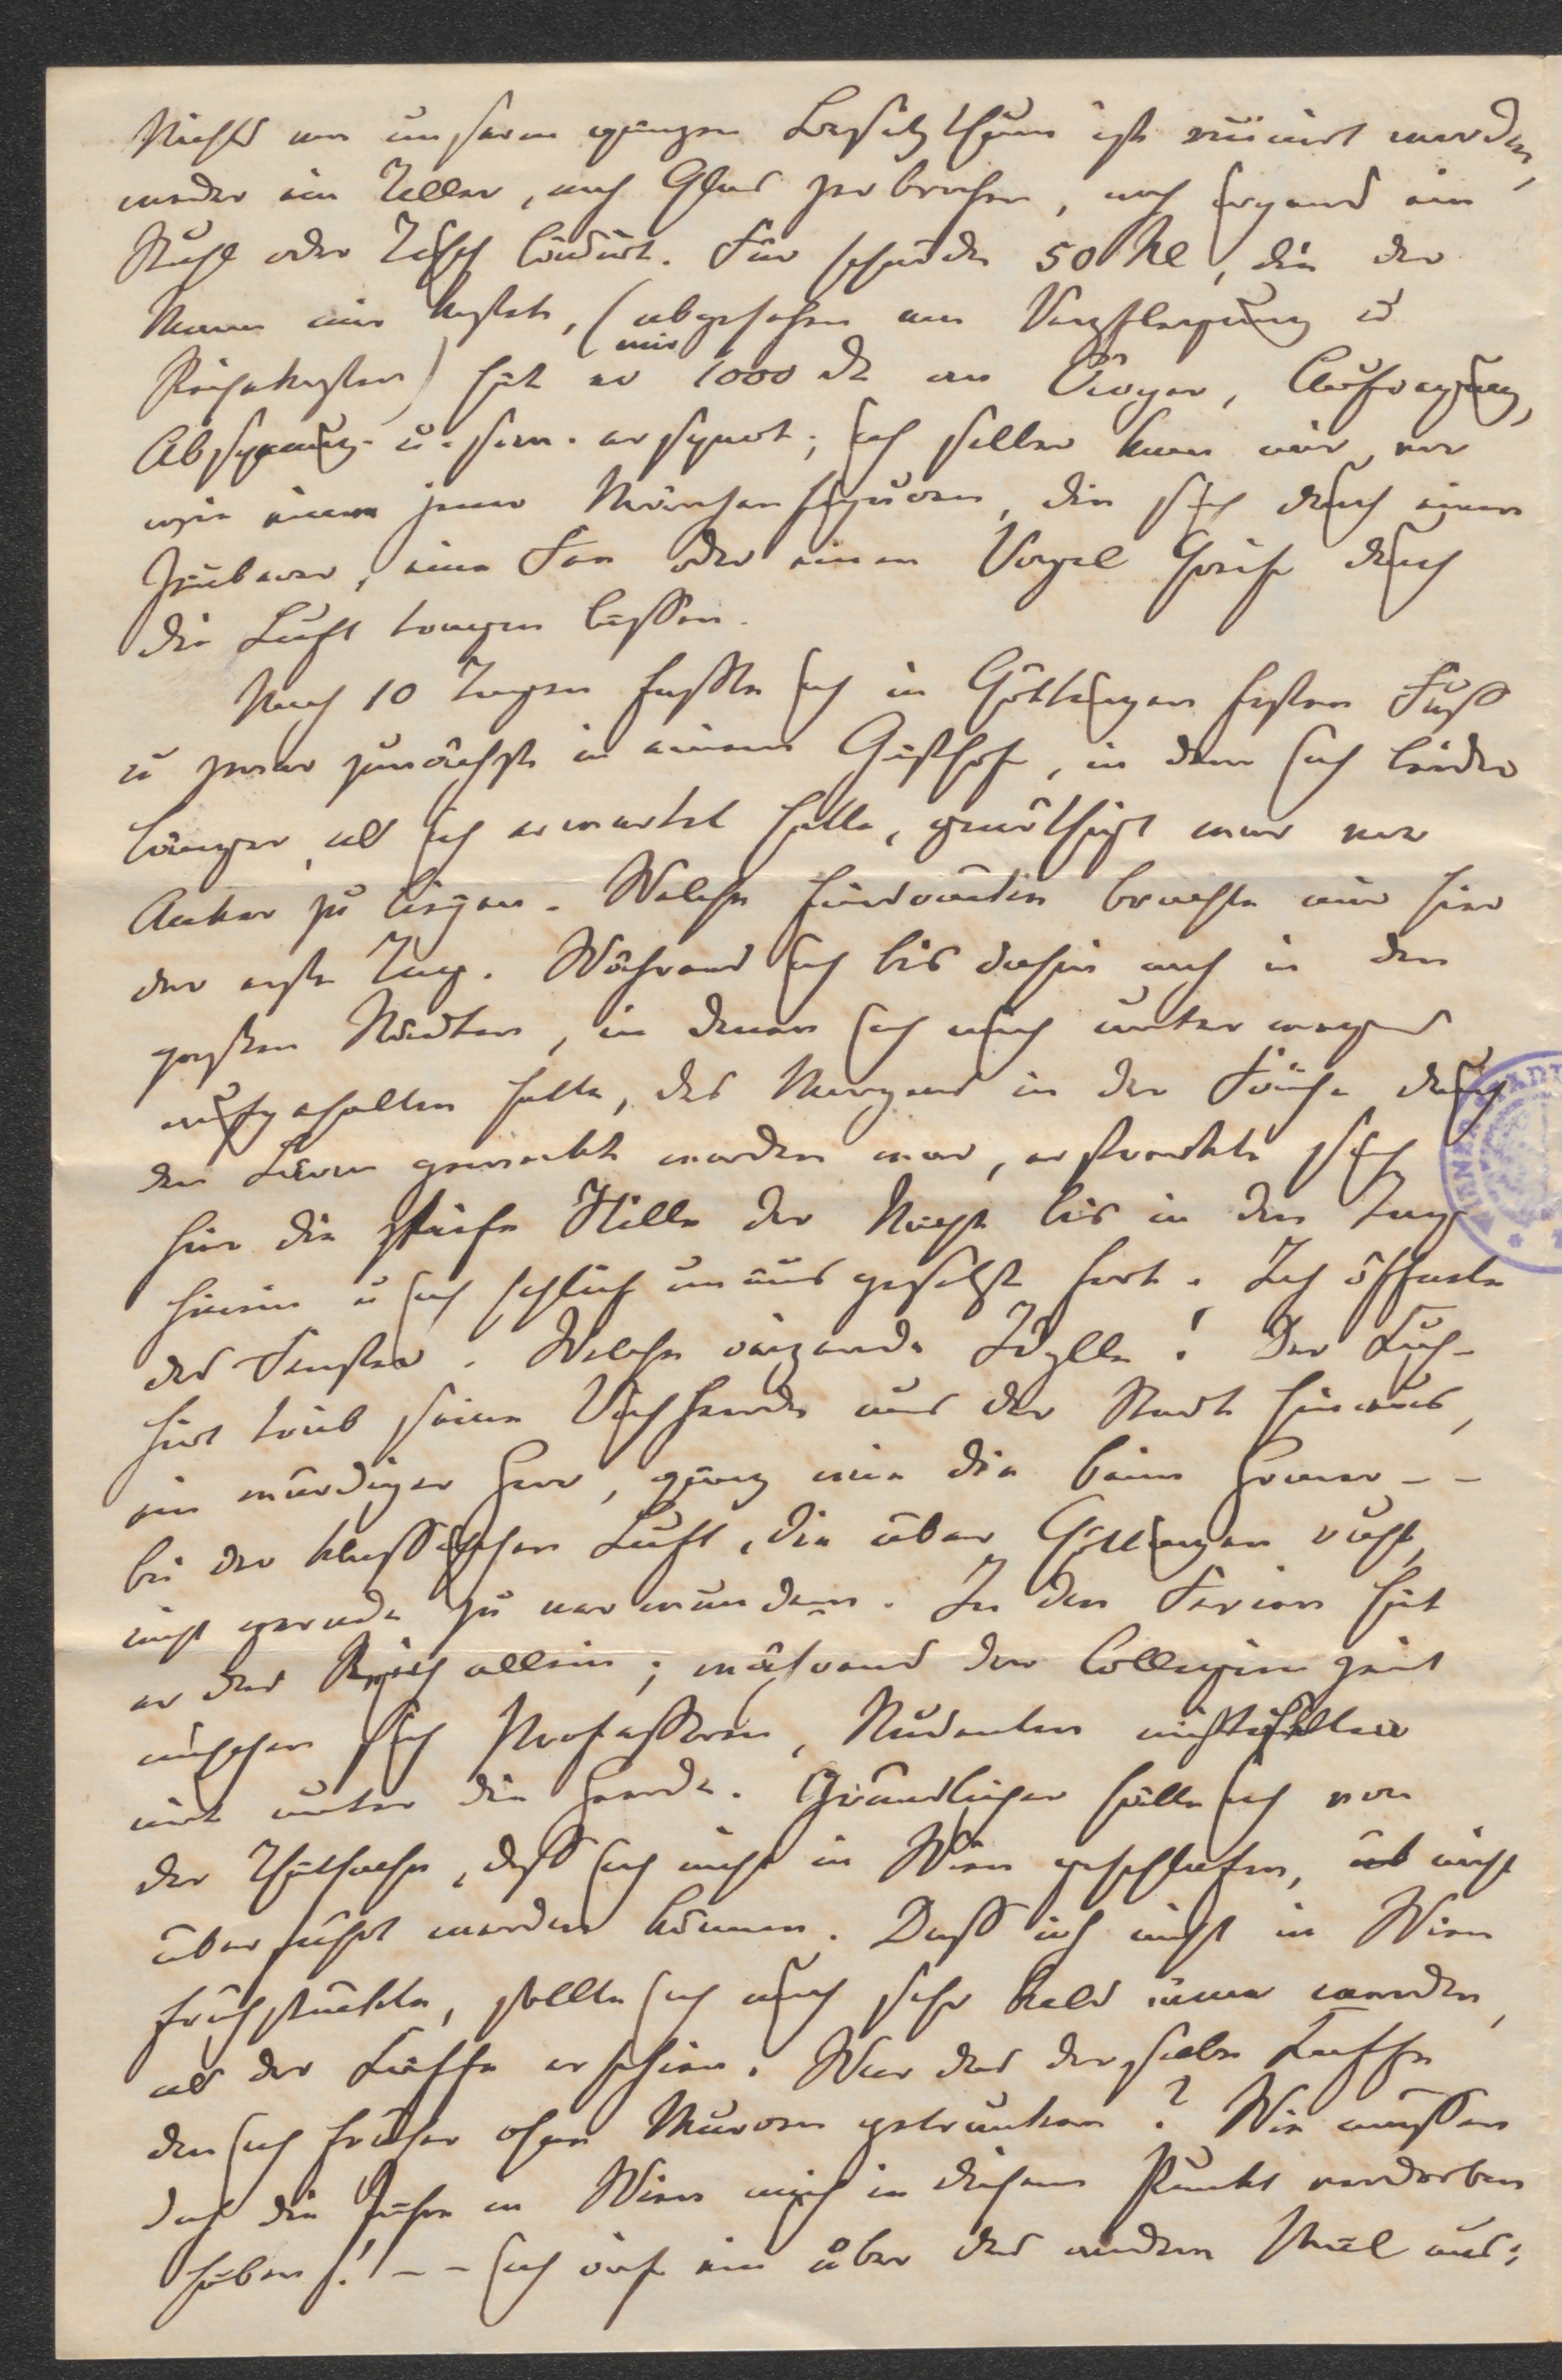 Nichts von unserem ganzen Besitzthum ist ruinirt worden,
weder ein Teller, noch Glas zerbrochen, noch irgend ein
Stuhl oder Tisch lädirt. Für schnöde 50 hl, die der
Mann mir kostete, (abgesehen von Verpflegung u
Reisekosten) hat er mir 1000 an Ärger, Aufregung,
Abspannung u. s. w. erspart; ich selber kam mir vor
wie einer jener Märchenfiguren, die sich durch einen
Zauberer, eine Fee oder einen Vogel Greif durch
die Luft tragen lassen.
Nach 10 Tagen fasste ich in Göttingen festen Fuß
u zwar zunächst in einem Gasthofe, in dem ich leider
länger, als ich erwartet hatte, genöthigt war vor
Anker zu liegen. Welche brachte mir hier
der erste Tag. Während ich bis dahin auch in den
großen Städten, in denen ich mich unterwegs
aufgehalten hatte, des Morgens in der Frühe durch
den Lärm geweckt worden war, erstreckte sich
hier die tiefe Stille der Nacht bis in den Tag
hinein u ich schlief unausgesetzt fort. Ich öffnete
das Fenster. Welche reizende Idylle! Der Kuh-
hirt trieb seine Viehheerde aus der Stadt hinaus,
ein würdiger Herr, ganz wie die beim Homer --
bei der klassischen Luft, die über Göttingen ruht,
nicht gerade zu verwundern. In den Ferien hat
er das Reich allein; während der Collegienzeit
mischen sich Professoren, Studenten nicht selten
mit unter die Heerde. Gründlicher hätte ich von
der Thatsache, dass ich nicht in Wien geschlafen, nicht
überführt werden können. Dass ich nicht in Wien
frühstückte, sollte ich auch sehr bald inne werden,
als der Kaffe erschien. War das derselbe Kaffe
den ich früher ohne Murren getrunken? Wie mussten
doch die Jahre in Wien mich in diesem Punkt verdorben
haben! -- Ich rief ein über das andere Mal aus: